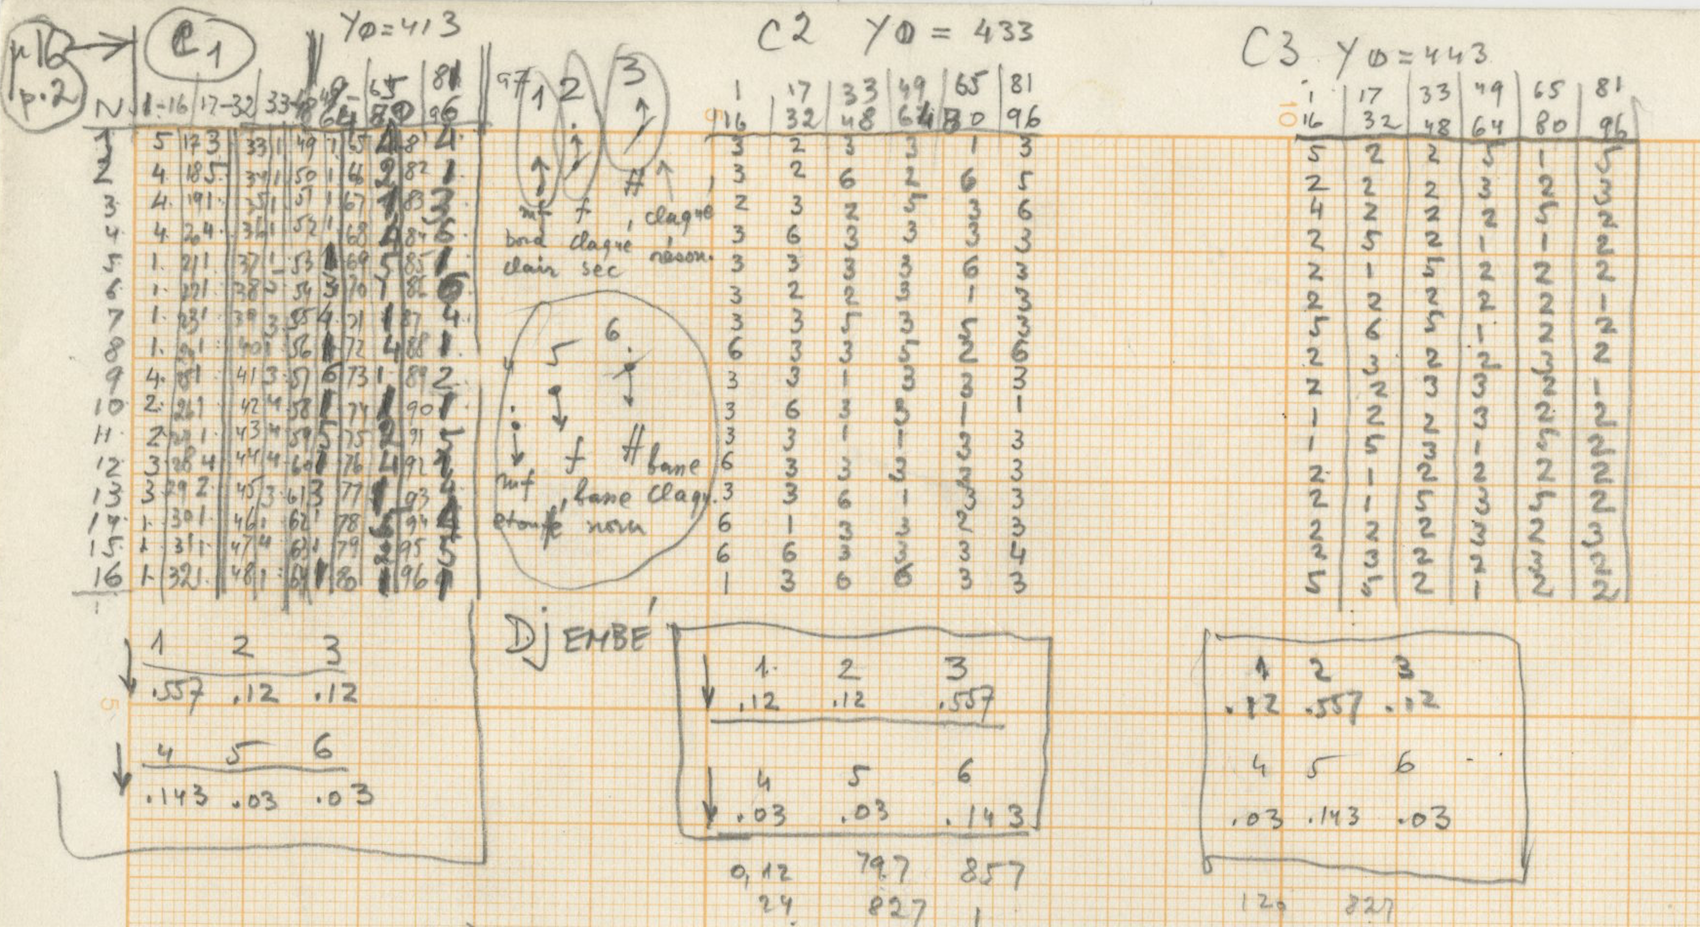 p16
p.2
C1 YØ=413
N 1-16 17-32 33-48 49-64 65-80 81-96
1 5 17 3 33 1 49 1 65 4 81 4
2 4. 18 5 34 1 50 1 66 2 82 1
3. 4. 19 1. 35 1. 51 1 67 1 83
4. 4. 20 4. 36 1 52 1. 68 84
5 1. 21 1 37 1 53 1 69 5 85 1
6. 1. 22 1 38 54 3 70 1 86 6
7 1. 23 1 39 3 55 4 71 1 87 4
8 1. 24 1 40 1 56 1 72 4 88 1
9 4. 25 1 41 3 57 6 73 1 89 2
10 2. 26 1 42 4 58 74 90 1
11. 2 27 1. 43 4 59 5 75 2 91
12 3. 28 4 44 4 60 1 76 4 92
13 3. 29 2. 45 3 61 3 77 1 93
14 1. 30 1. 46 1 62 1 78 94 4
15. 1. 31 1. 47 4 63 1 79 2 95 5
16 1. 32 1. 48 1 64 1 80 1 96 1
1 2 3
mf f ff claqué
bord claqué réson.
clair sec
4 5 6.
mf f ff bane
bane claqu.
étouffé norm
C2 YØ = 433
1 17 33 49 65 81
16 32 48 64 80 96
3 2 3 3 1 3
3 2 6 2 6 5
2 3 2 5 3 6
3 6 3 3 3 3
3 3 3 3 6 3
3 2 2 3 1 3
3 3 5 3 5 3
6 3 3 5 2 6
3 3 1 3 3 3
3 6 3 3 1 1
3 3 1 1 3 3
6 3 3 3 3 3
3 3 6 1 3 3
6 1 3 3 2 3
6 6 3 3 3 4
1 3 6 6 3 3
C3 YØ=443
1 17 33 49 65 81
16 32 48 64 80 96
5 2 2 5 1 5
2 2 2 3 2 3
4 2 2 2 5 2
2 5 2 1 1 2
2 1 5 2 2 2
2 2 2 2 2 1
5 6 5 1 2 2
2 3 2 2 3 2
2 2 3 3 2 1
1 2 2 3 2 2
1 5 3 1 5 2
2 1 2 2 2 2
2 1 5 3 5 2
2 2 2 3 2 3
2 3 2 2 3 2
5 5 2 1 2 2
1 2 3
.557 .12 .12
4 5 6
.143 .03 .03
DjEMBÉ
1. 2 3
.12 .12 .557
4 5 6
.03 .03 .143
0,12 797 857
24 827 1
1 2 3
.12 .557 .12
4 5 6
.03 .143 .03
120 827